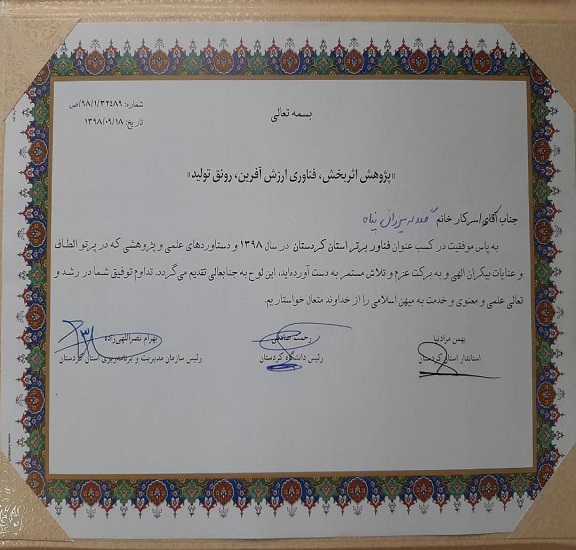 شماره: ۹۸/۱/۳۲۴۸۹/ص
تاریخ: ۱۳۹۸/۰۹/۱۸
بسمه تعالی
«پژوهش اثربخش، فناوری ارزش آفرین، رونق تولید»
جناب آقای/سرکار خانم
به پاس موفقیت در کسب عنوان فناور برتر استان کردستان در سال ۱۳۹۸ و دستاوردهای علمی و پژوهشی که در پرتو الطاف
و عنایات بیکران الهی و به برکت عزم و تلاش مستمر به دست آورده‌اید، این لوح به جنابعالی تقدیم می‌گردد. تداوم توفیق شما در رشد و
تعالی علمی و معنوی و خدمت به میهن اسلامی را از خداوند متعال خواستاریم.
بهمن مرادنیا
استاندار استان کردستان
رحمت صادقی
رئیس دانشگاه کردستان
بهرام نصراللهی‌زاده
رئیس سازمان مدیریت و برنامه‌ریزی استان کردستان